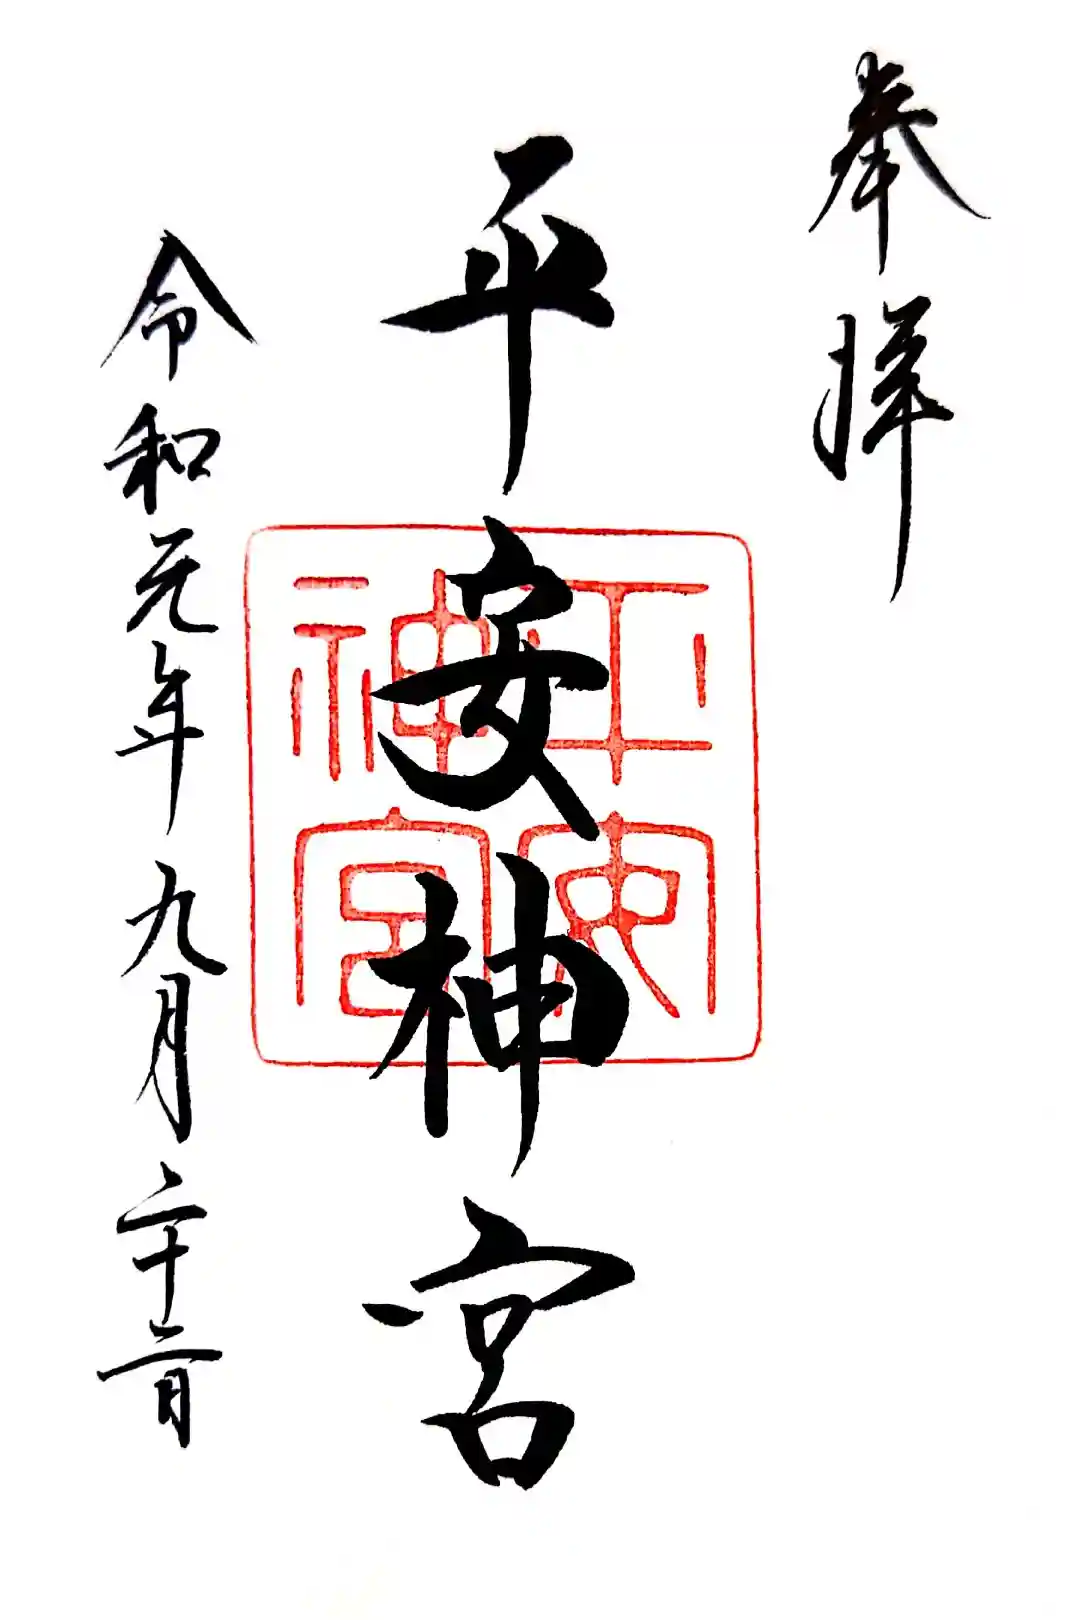 奉拝
平安神宮
平安神宮
令和元年九月二十二日